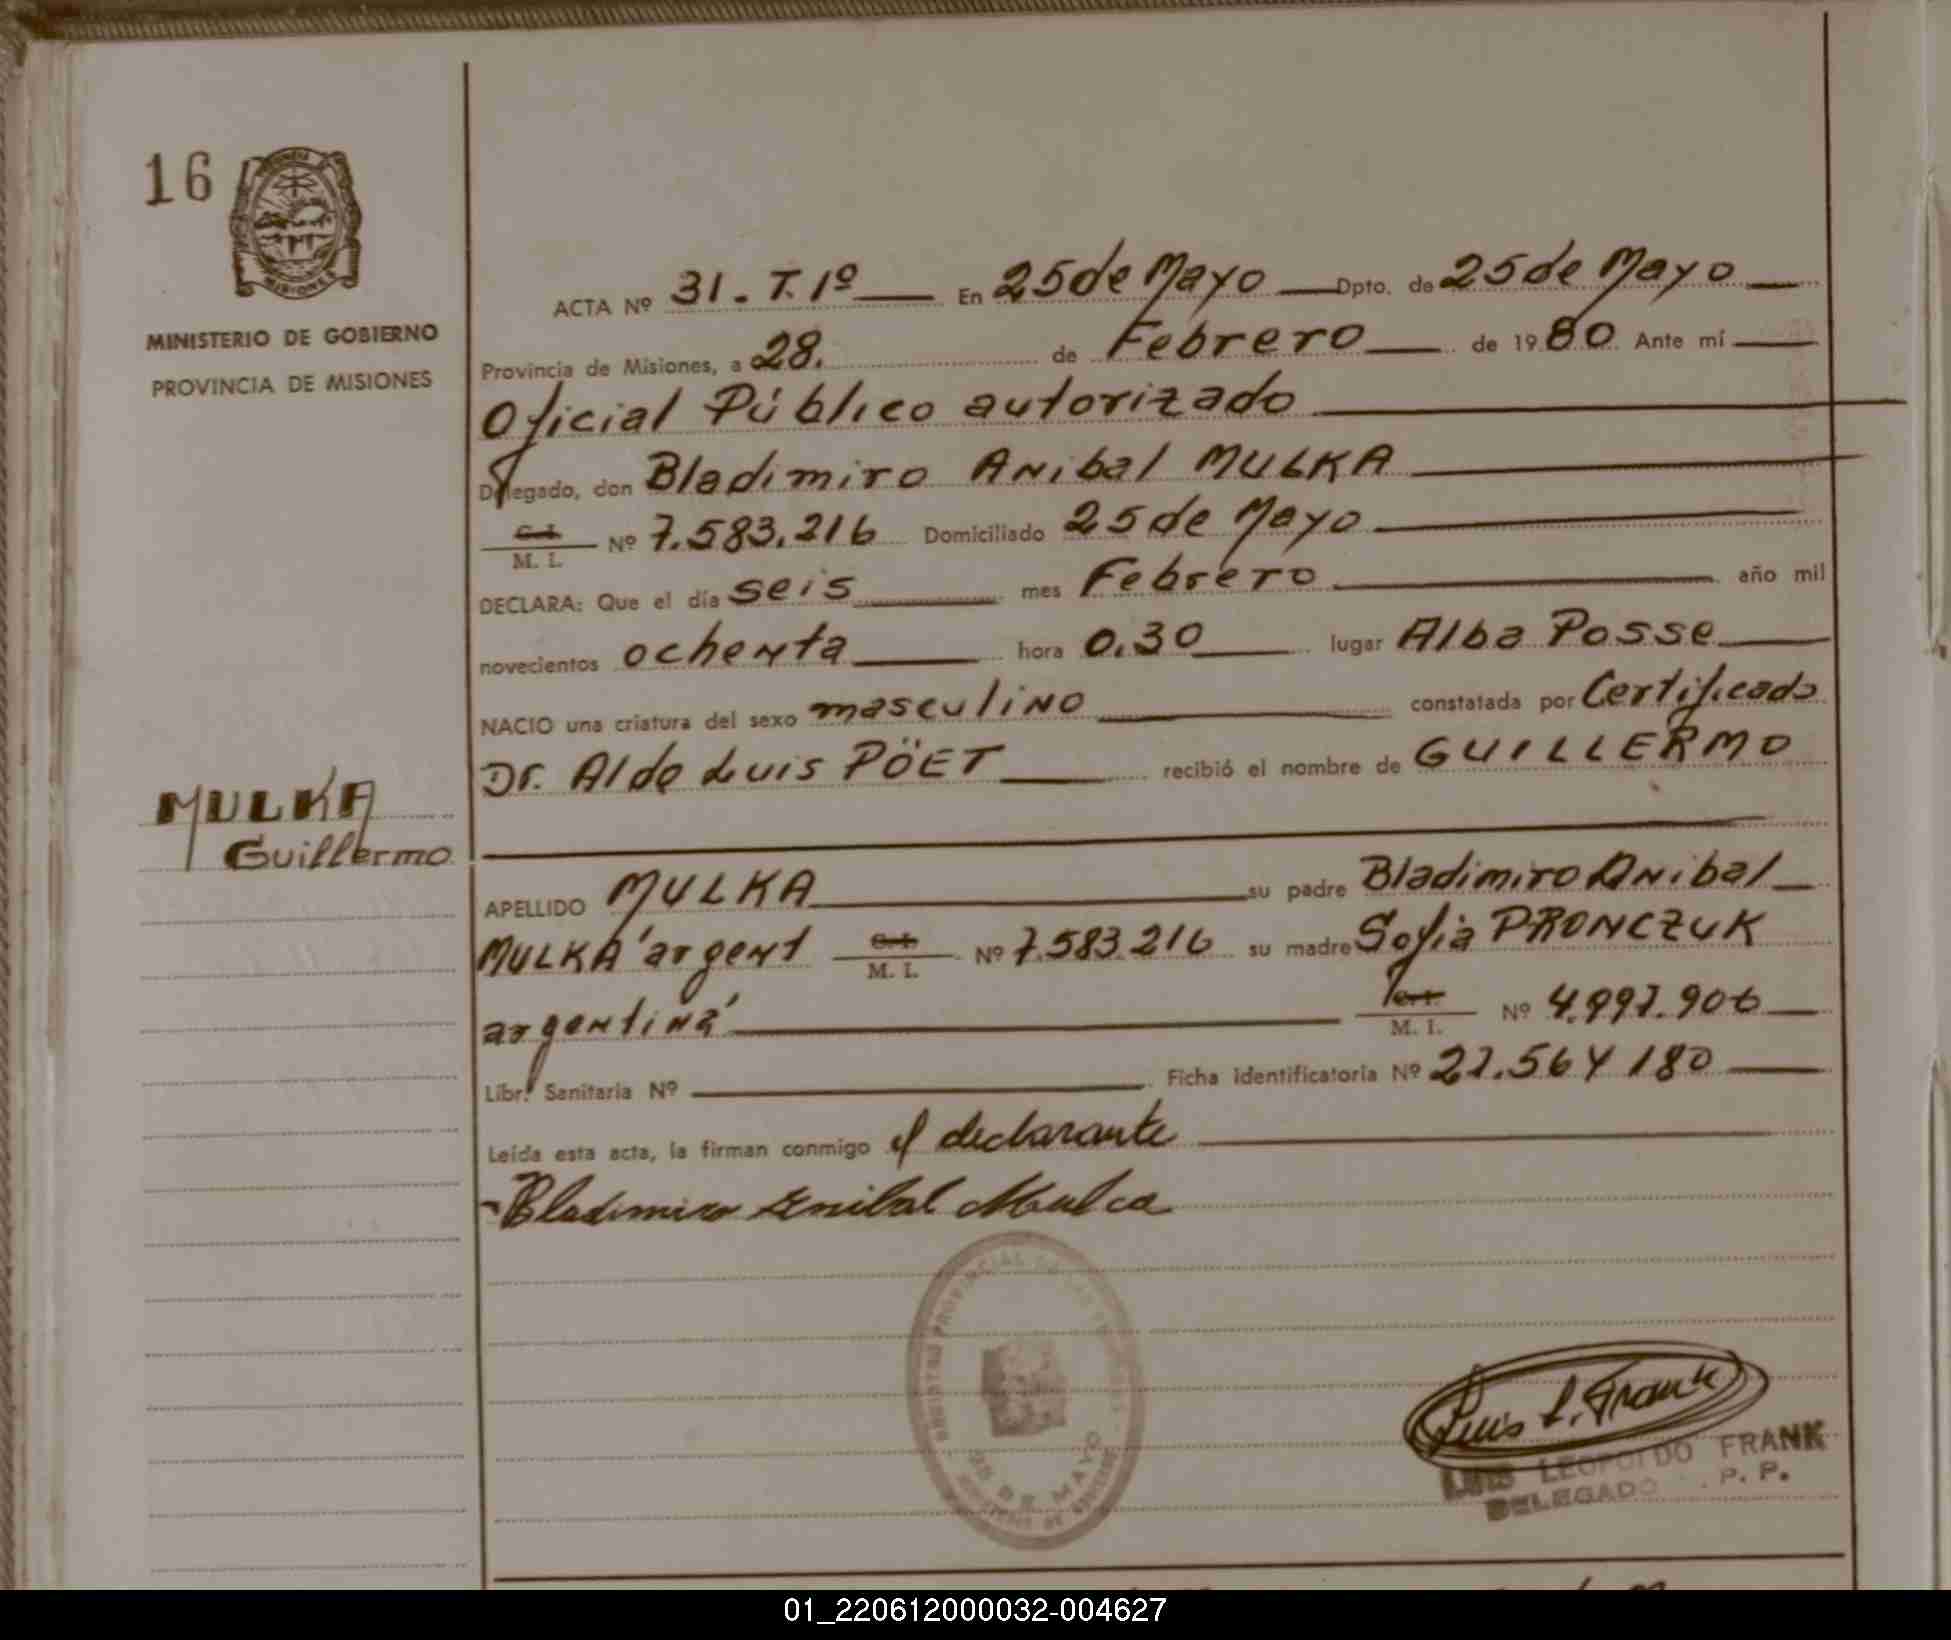 16
MINISTERIO DE GOBIERNO
PROVINCIA DE MISIONES
MULKA
Guillermo
ACTA Nº 31. T. 1º En 25 de Mayo Dpto. de 25 de Mayo
Provincia de Misiones, a 28. de Febrero de 1980 Ante mí
Oficial Público autorizado
Delegado, don Bladimiro Anibal MULKA
C.I. M. I. Nº 7.583.216 Domiciliado 25 de Mayo
DECLARA: Que el día seis mes Febrero año mil
novecientos ochenta hora 0.30 lugar Alba Posse
NACIO una criatura del sexo masculino constatada por Certificado
Dr. Aldo Luis PÖET recibió el nombre de GUILLERMO
APELLIDO MULKA su padre Bladimiro Anibal
MULKA argent C.I. M. I. Nº 7.583.216 su madre Sofia PRONCZUK
argentina C.I. M. I. Nº 4.997.906
Libr. Sanitaria Nº Ficha identificatoria Nº 27.564 180
Leída esta acta, la firman conmigo el declarante
Bladimiro Anibal Mulca
25 DE MAYO
Luis L. Frank
LUIS LEOPOLDO FRANK
DELEGADO P. P.
01_220612000032-004627